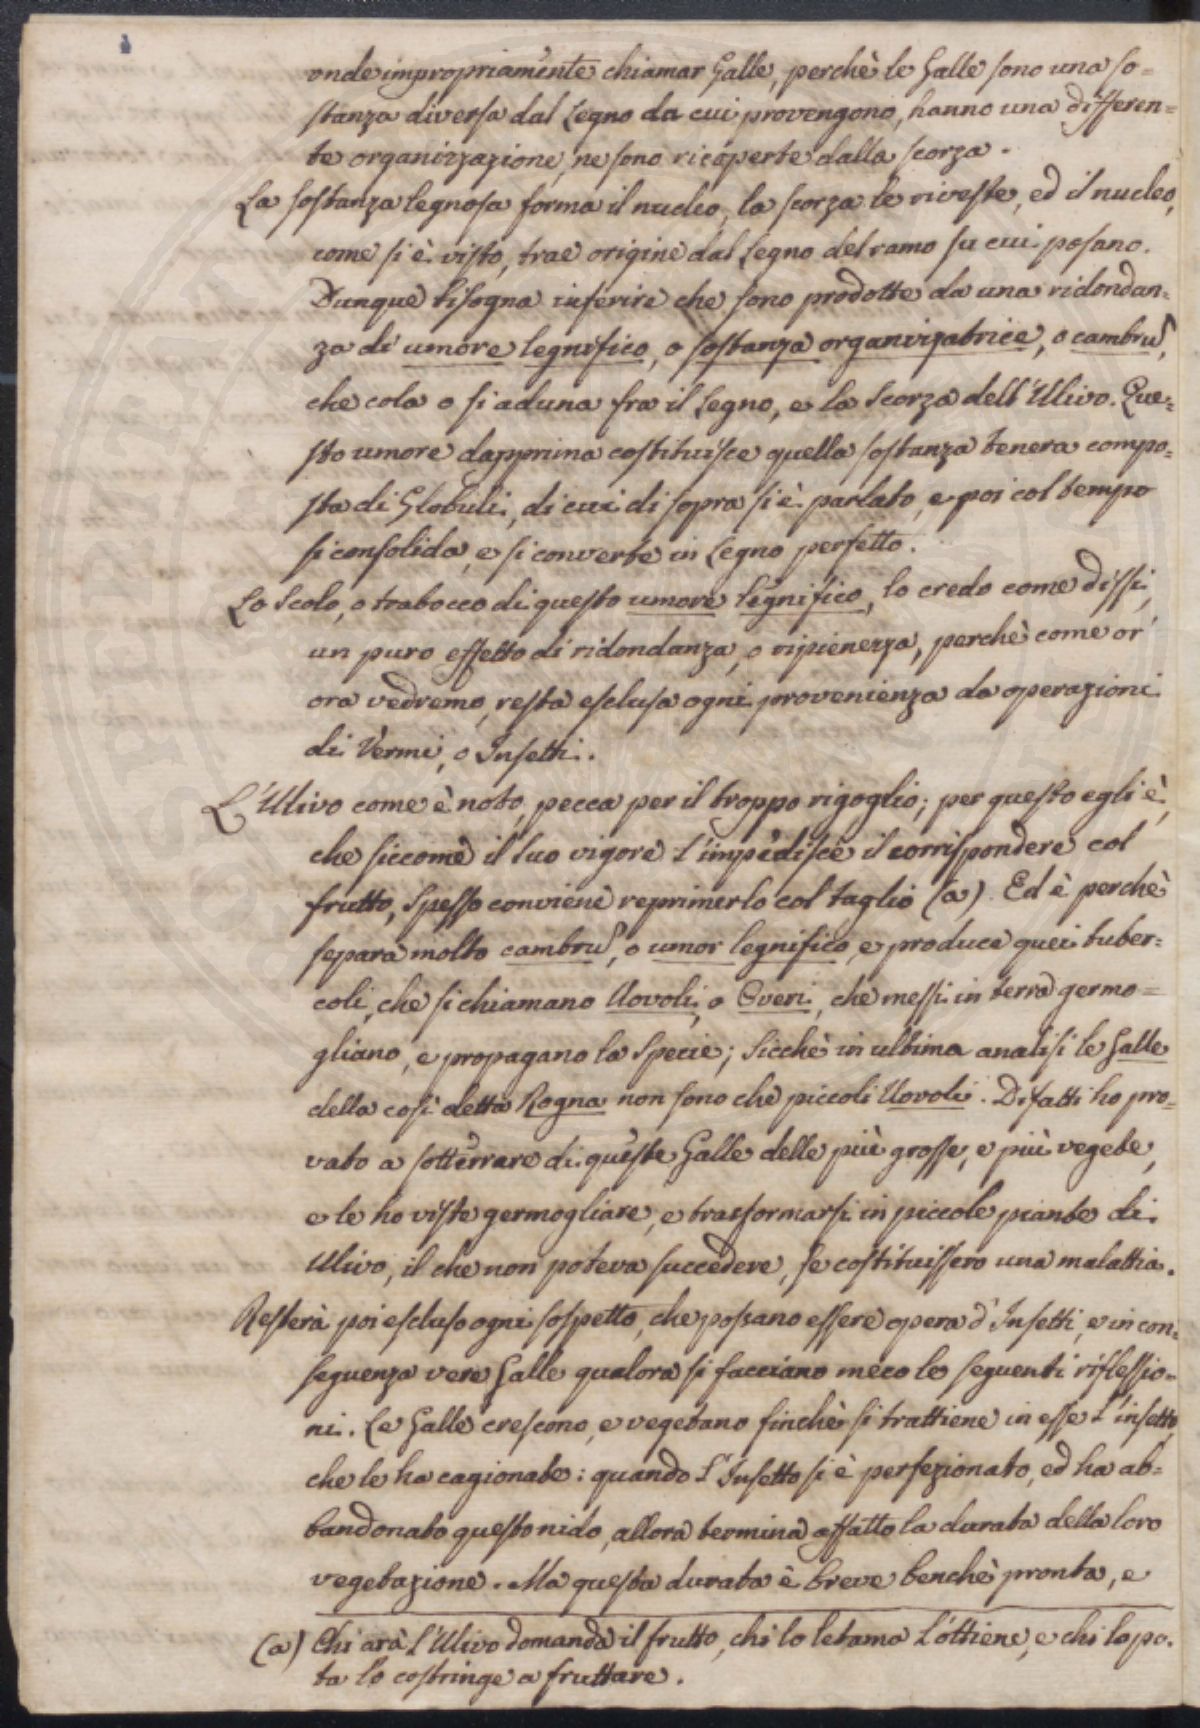 onde impropriamente chiamar Galle, perchè le Galle sono una so=
stanza diversa dal Legno da cui provengono, hanno una differen=
te organizzazione, ne sono ricoperte dalla scorza.
La sostanza legnosa forma il nucleo, la scorza le riveste, ed il nucleo,
come si è visto, trae origine dal Legno del ramo su cui posano.
Dunque bisogna inferire che sono prodotte da una ridondan=
za di umore legnifico, o sostanza organizzatrice, o cambru,
che cola o si aduna fra il Legno, e la Scorza dell'Ulivo. Que=
sto umore dapprima costituisce quella sostanza tenera compo=
sta di Globuli, di cui di sopra si è parlato, e poi col tempo
si consolida, e si converte in Legno perfetto.
Lo Scolo, o trabocco di questo umore legnifico, lo credo come dissi,
un puro effetto di ridondanza, o ripienezza, perchè come or'
ora vedremo, resta esclusa ogni provenienza da operazioni
di Vermi, o Insetti.
L'Ulivo come è noto, pecca per il troppo rigoglio; per questo egli è,
che siccome il suo vigore l'impedisce il corrispondere col
frutto, Spesso conviene reprimerlo col taglio (a). Ed è perchè
separa molto cambru, o umor legnifico, e produce quei tuber=
coli, che si chiamano Uovoli, o Overi, che messi in terra germo=
gliano, e propagano la Specie; Sicchè in ultima analisi le Galle
della così detta Rogna non sono che piccoli Uovoli. Difatti ho pro=
vato a sotterrare di queste Galle delle più grosse, e più vegete,
e le ho viste germogliare, e trasformarsi in piccole piante di
Ulivo, il che non poteva succedere, se costituissero una malattia.
Resterà poi escluso ogni sospetto, che possano essere opera d'Insetti, e in con=
seguenza vere Galle qualora si facciano meco le seguenti riflessio=
ni. Le Galle crescono, e vegetano finchè si trattiene in esse l'insetto
che le ha cagionate: quando l'Insetto si è perfezionato, ed ha ab=
bandonato questo nido, allora termina affatto la durata della loro
vegetazione. Ma questa durata è breve benchè pronta, e
(a) Chi ara l'Ulivo domanda il frutto, chi lo letama l'ottiene, e chi lo po=
ta lo costringe a fruttare.